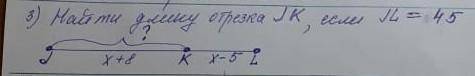 3) Найти длину отрезка JK, если JL = 45
?
J x+8 K x-5 L